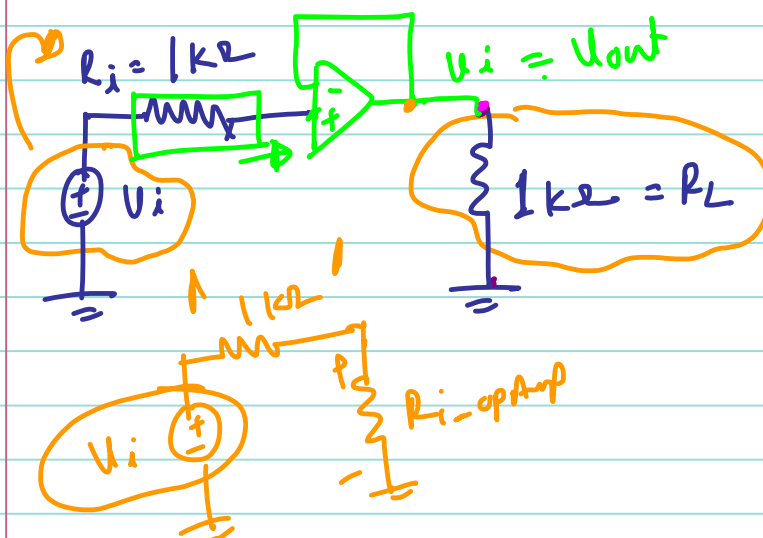 Ri = 1kΩ
Vi = Vout
Vi
1kΩ = RL
1kΩ
Vi
Ri-opAmp